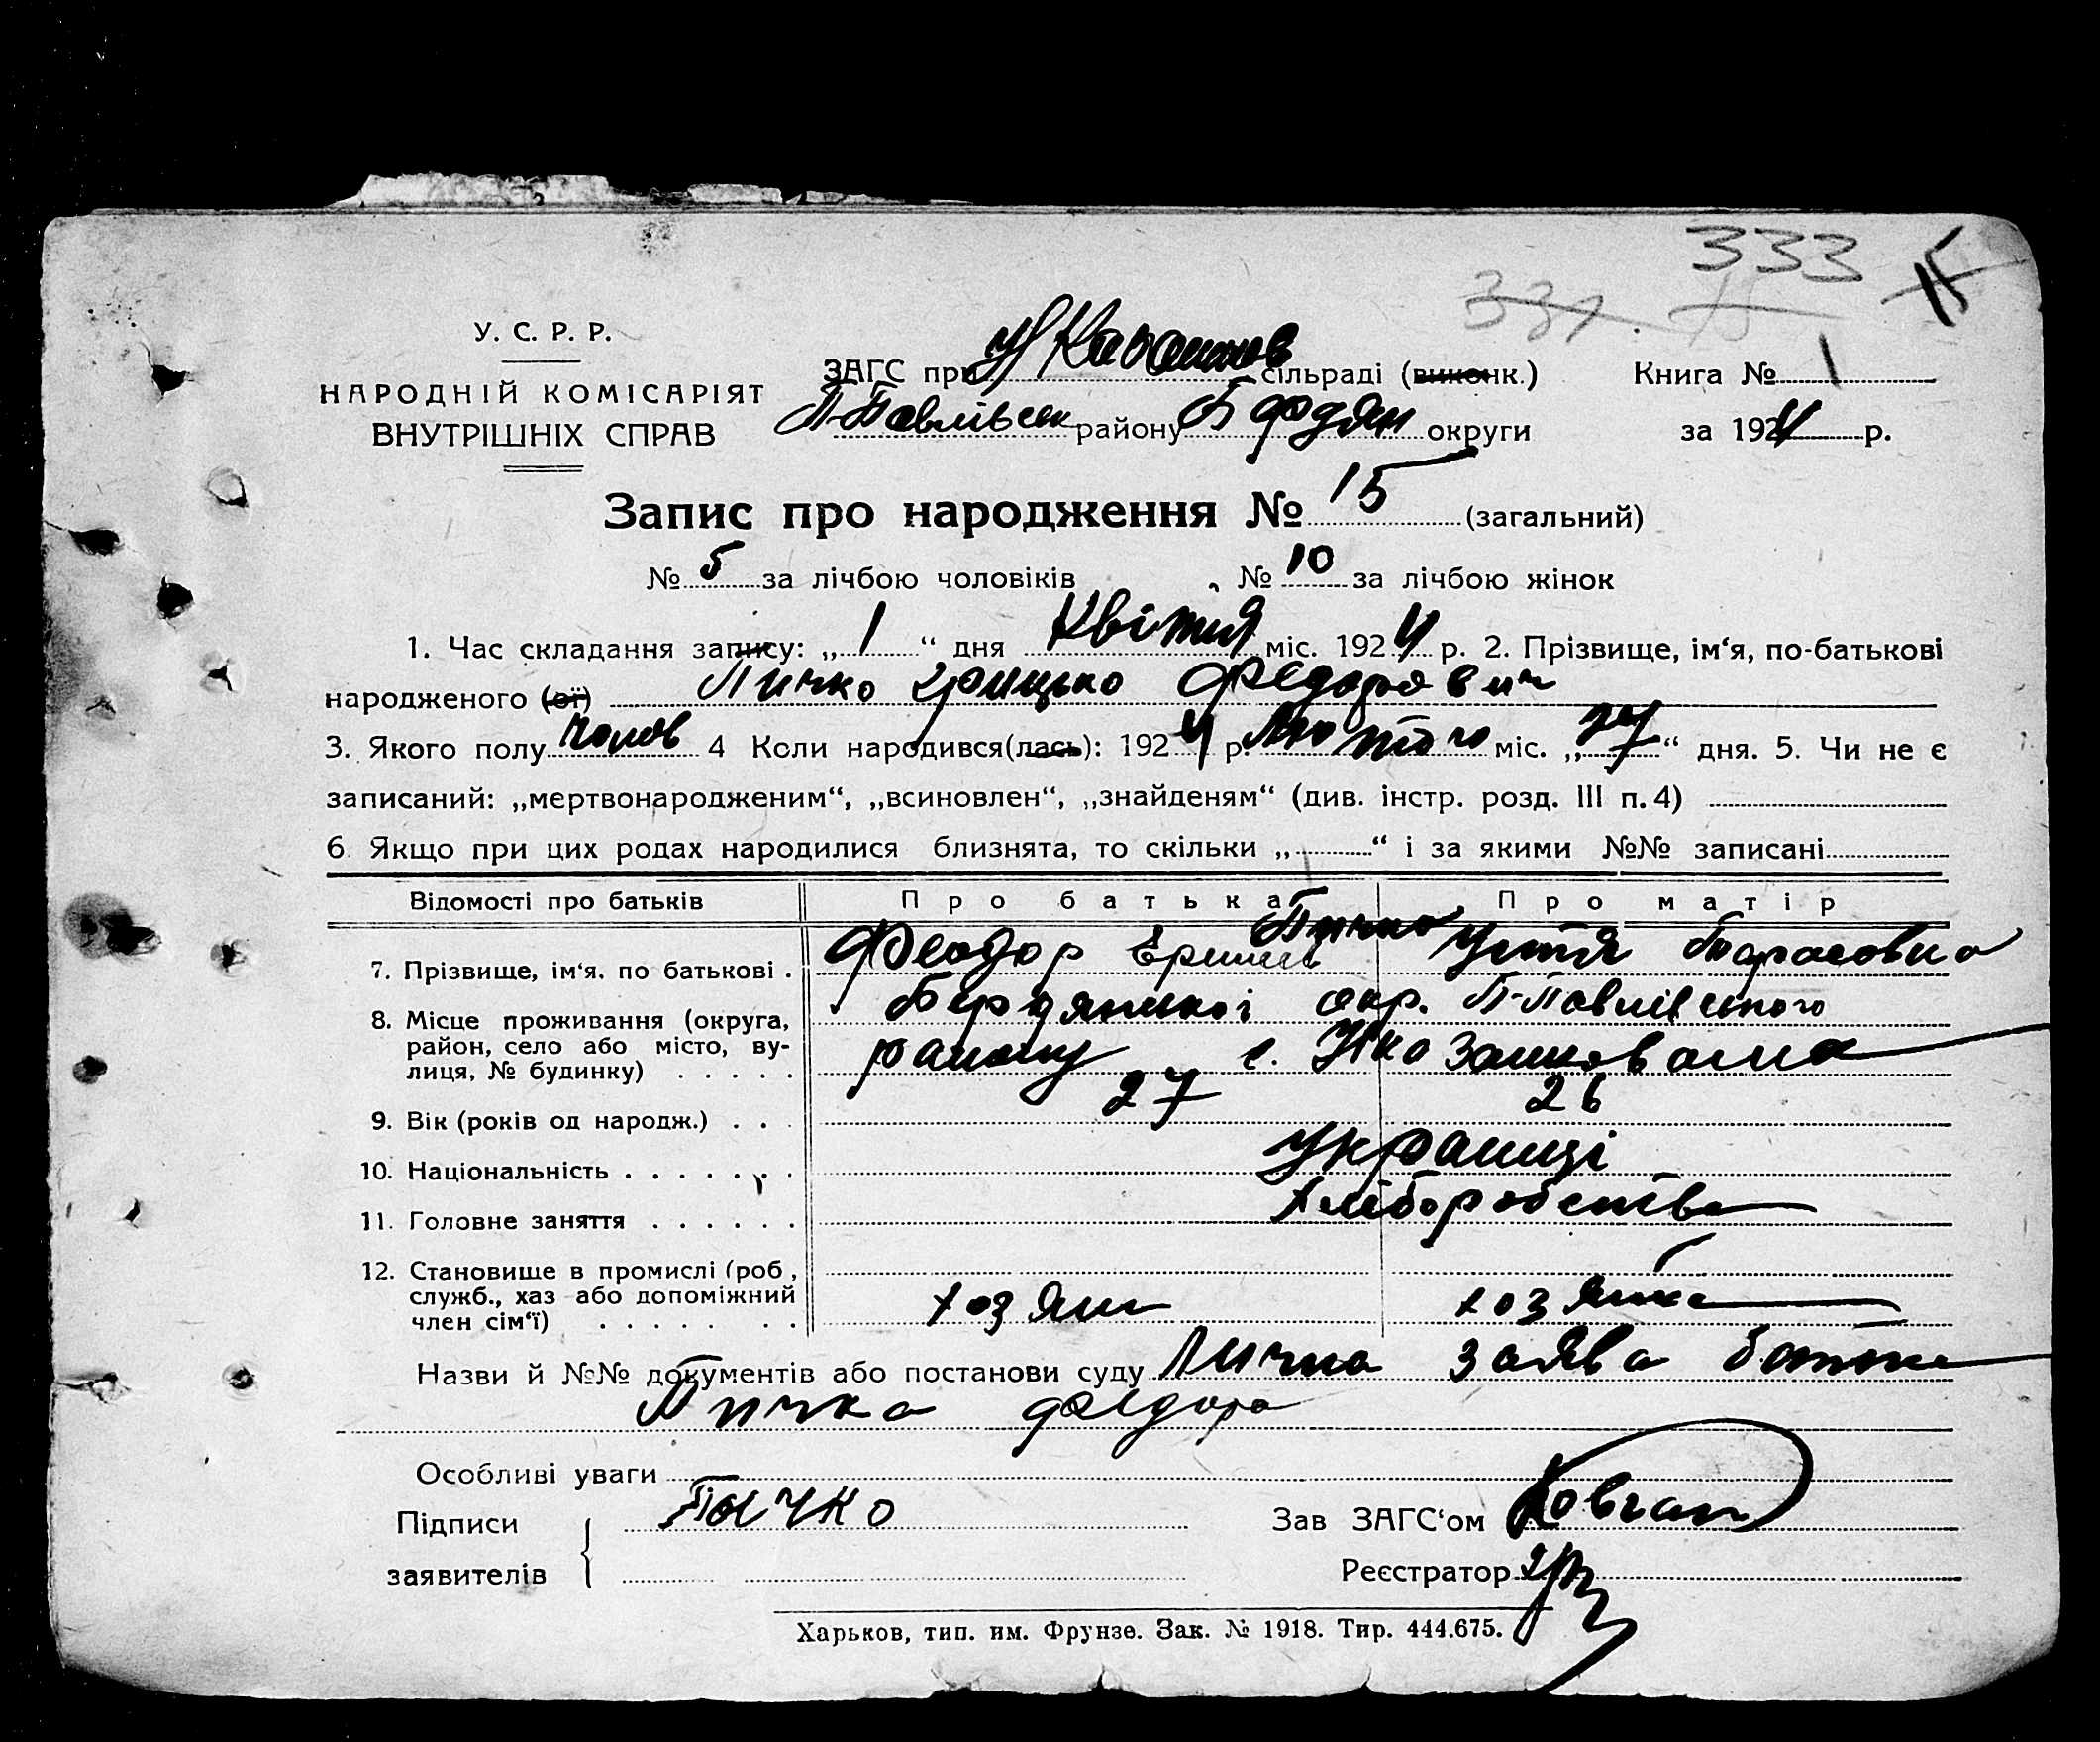 333
331 15 15
У. С. Р. Р.
НАРОДНІЙ КОМІСАРІЯТ
ВНУТРІШНІХ СПРАВ
ЗАГС при сільраді (виконк.) Книга № 1
П-Павлівськ району Бердян округи за 1924 р.
Запис про народження № 15 (загальний)
№ 5 за лічбою чоловіків, № 10 за лічбою жінок
1. Час складання запису: „ 1 “ дня Квітня міс. 1924 р. 2. Прізвище, ім‘я, по-батькові
народженого (ої) Пичко Грицько Федорович
3. Якого полу чолов 4 Коли народився(лась): 1924 р. Лютого міс. „ “ дня. 5. Чи не є
записаний: „мертвонародженим“, „всиновлен“, „знайденям“ (див. інстр. розд. III п. 4)
6. Якщо при цих родах народилися близнята, то скільки „ “ і за якими №№ записані
Відомості про батьків Про батька Про матір
7. Прізвище, ім‘я, по батькові . Феодор Пичко Устя Тарасовна
8. Місце проживання (округа, Бердянської окр. П-Павлівського
район, село або місто, ву- району с.
лиця, № будинку) . . . . .
9. Вік (років од народж.) . . . 27 26
10. Національність . . . . . . . Українці
11. Головне заняття . . . . . . Хліборобство
12. Становище в промислі (роб,
служб., хаз або допоміжний хозяин хозяйка
член сім‘ї) . . . . . . .
Назви й №№ документів або постанови суду Лична заява батька
Пичка Федора
Особливі уваги
Підписи Пычко Зав ЗАГС‘ом Ковган
заявителів Реєстратор
Харьков, тип. им. Фрунзе. Зак. № 1918. Тир. 444.675.